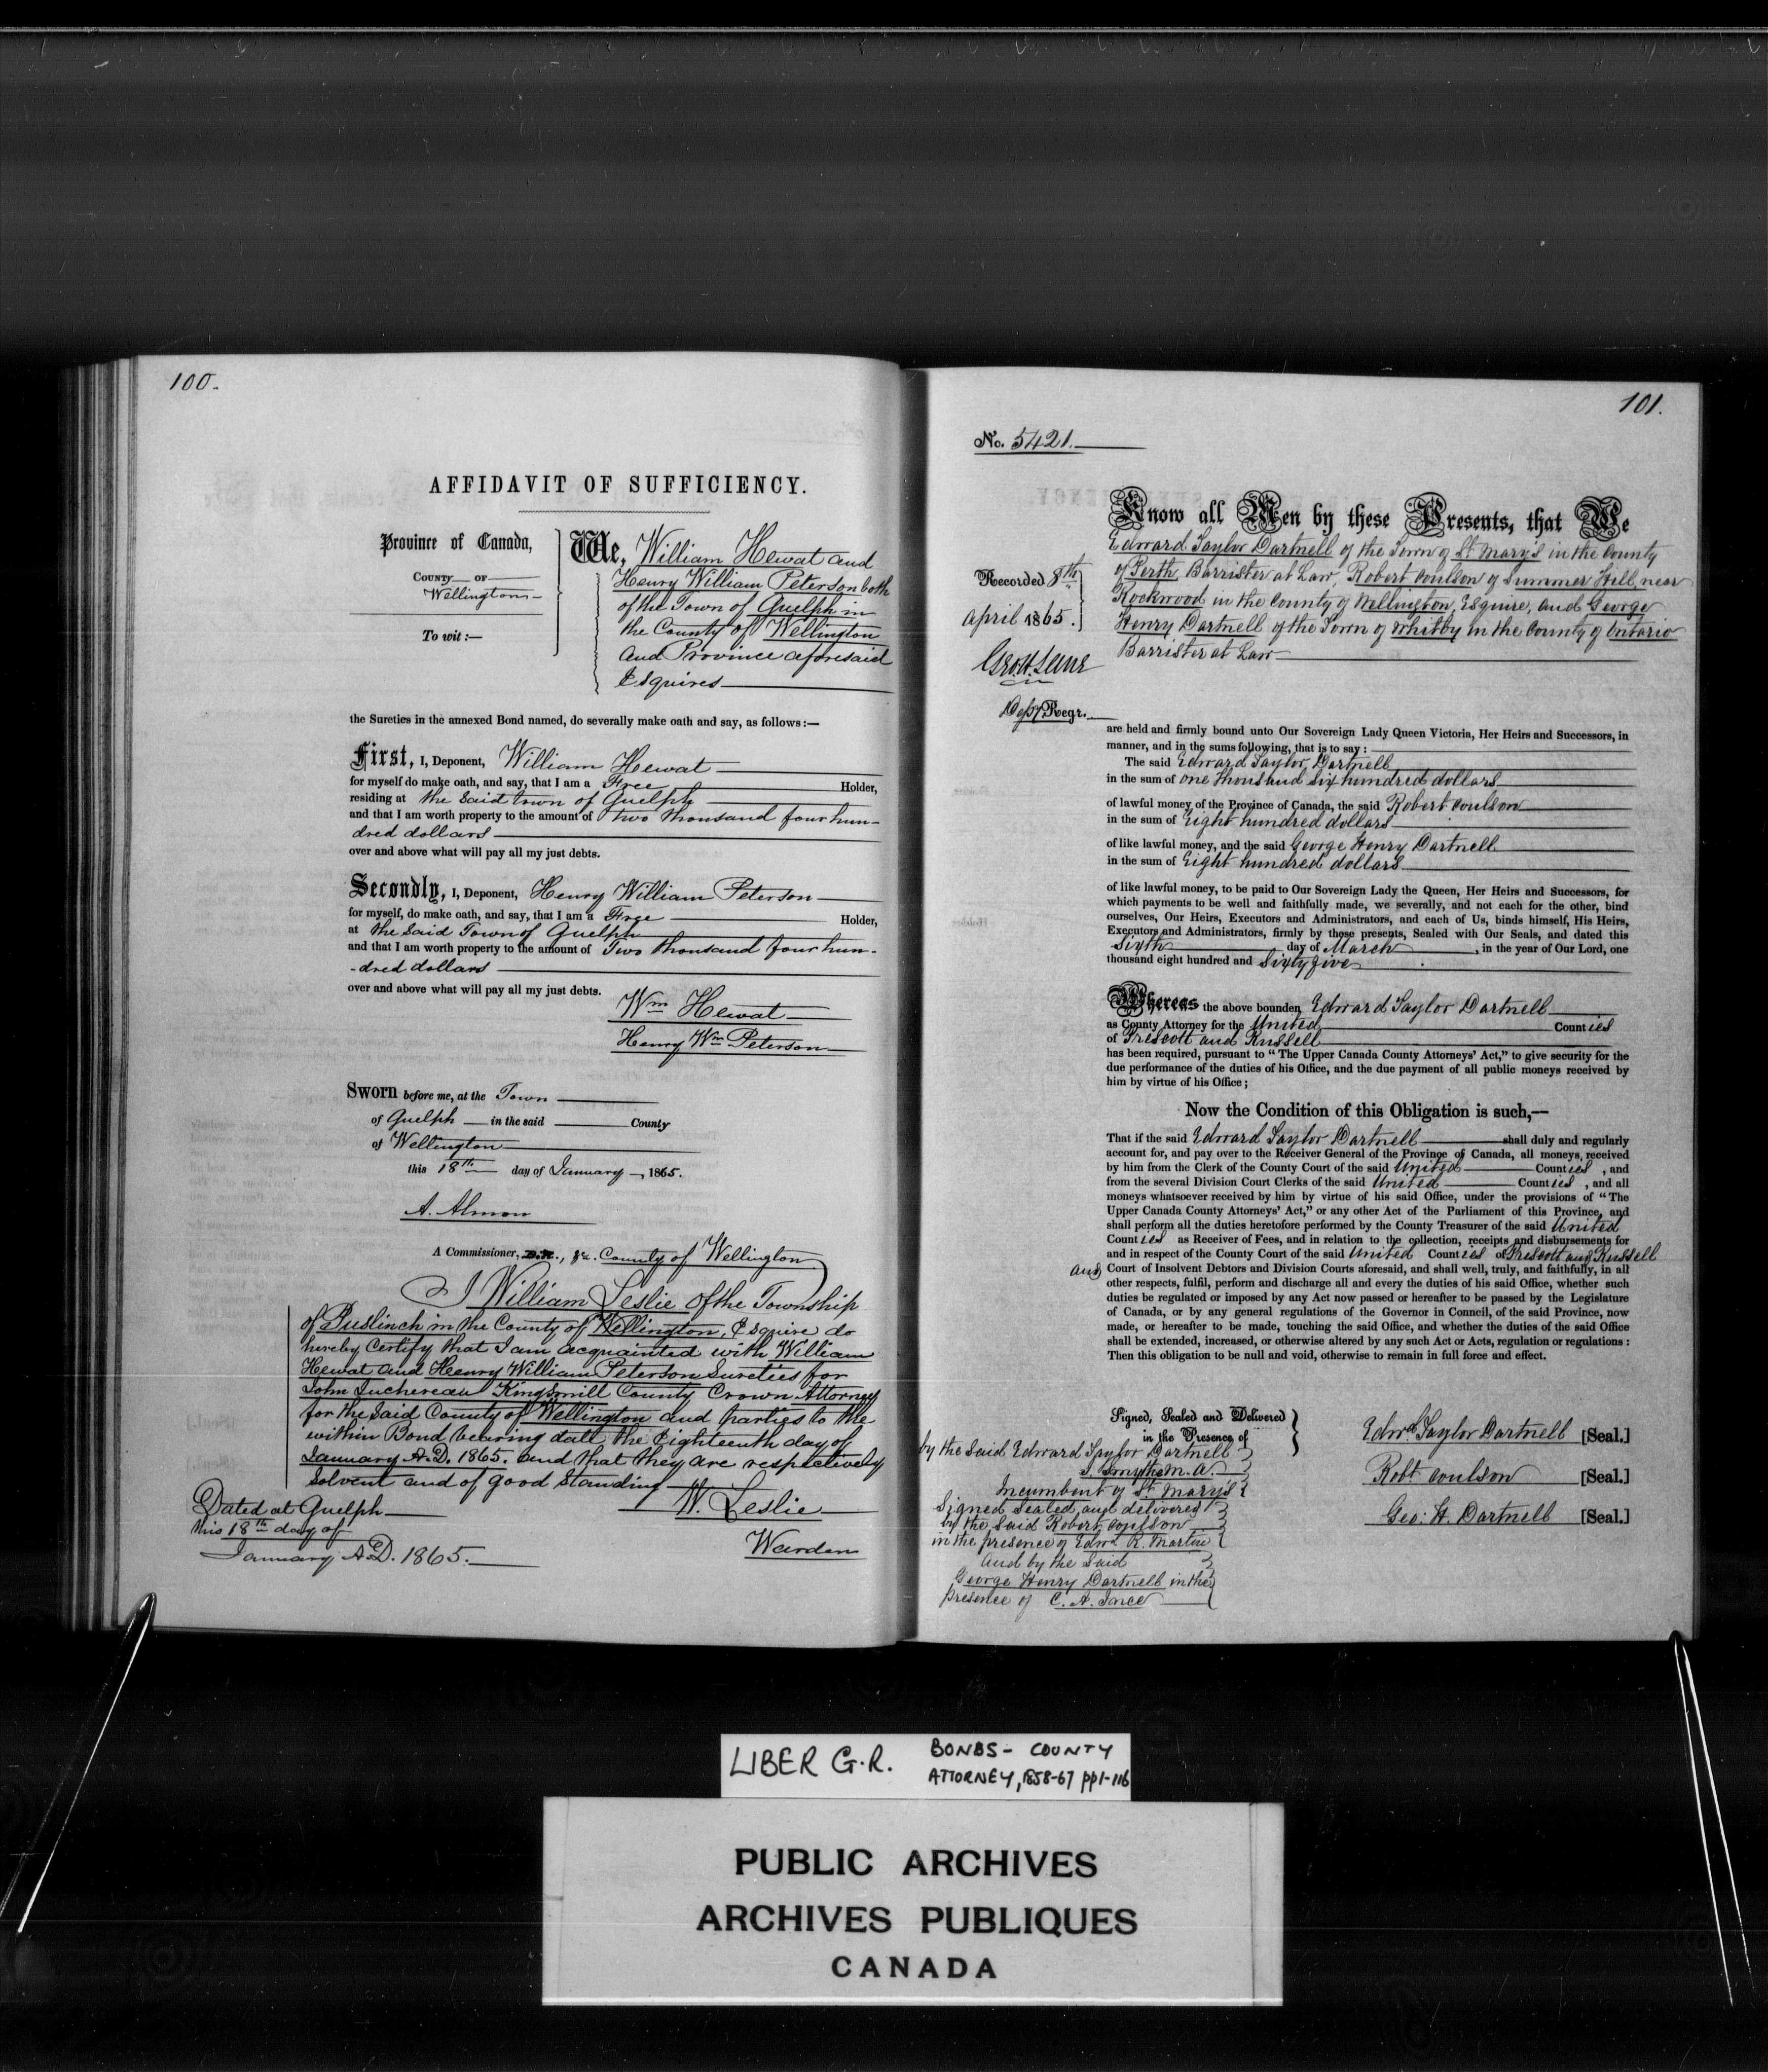 100.
AFFIDAVIT OF SUFFICIENCY.
Province of Canada,
COUNTY OF
Wellington
To wit :—
We, William Hewat and
Henry William Peterson both
of the Town of Guelph in
the County of Wellington
and Province aforesaid
Esquires
the Sureties in the annexed Bond named, do severally make oath and say, as follows :—
First, I, Deponent, William Hewat
for myself do make oath, and say, that I am a Free Holder,
residing at the said town of Guelph
and that I am worth property to the amount of two thousand four hun-
dred dollars
over and above what will pay all my just debts.
Secondly, I, Deponent, Henry William Peterson
for myself, do make oath, and say, that I am a Free Holder,
at the said Town of Guelph
and that I am worth property to the amount of Two thousand four hun-
-dred dollars
over and above what will pay all my just debts.
Wm Hewat
Henry Wm Peterson
Sworn before me, at the Town
of Guelph in the said County
of Wellington
this 18th day of January, 1865.
A. Almon
A Commissioner, B.R., &c. County of Wellington
I William Leslie of the Township
of Puslinch in the County of Wellington, Esquire do
hereby Certify that I am acquainted with William
Hewat and Henry William Peterson Sureties for
John Juchereau Kingsmill County Crown Attorney
for the said County of Wellington and parties to the
within Bond bearing date the Eighteenth day of
January A.D. 1865. and that they are respectively
solvent and of good standing
W. Leslie
Warden
Dated at Guelph
this 18th day of
January A.D. 1865.
101.
No. 5421.
Recorded 8th
April 1865.
Depy Regr.
Know all Men by these Presents, that We
Edward Taylor Dartnell of the Town of St Mary's in the County
of Perth, Barrister at Law, Robert Coulson of Summer Hill, near
Rockwood in the County of Wellington, Esquire, and George
Henry Dartnell of the Town of Whitby in the County of Ontario
Barrister at Law
are held and firmly bound unto Our Sovereign Lady Queen Victoria, Her Heirs and Successors, in
manner, and in the sums following, that is to say :
The said Edward Taylor Dartnell
in the sum of one thousand six hundred dollars
of lawful money of the Province of Canada, the said Robert Coulson
in the sum of Eight hundred dollars
of like lawful money, and the said George Henry Dartnell
in the sum of Eight hundred dollars
of like lawful money, to be paid to Our Sovereign Lady the Queen, Her Heirs and Successors, for
which payments to be well and faithfully made, we severally, and not each for the other, bind
ourselves, Our Heirs, Executors and Administrators, and each of Us, binds himself, His Heirs,
Executors and Administrators, firmly by these presents, Sealed with Our Seals, and dated this
Sixth day of March, in the year of Our Lord, one
thousand eight hundred and Sixty five
Whereas the above bounden Edward Taylor Dartnell
as County Attorney for the United Counties
of Prescott and Russell
has been required, pursuant to “The Upper Canada County Attorneys’ Act,” to give security for the
due performance of the duties of his Office, and the due payment of all public moneys received by
him by virtue of his Office ;
Now the Condition of this Obligation is such,—
That if the said Edward Taylor Dartnell shall duly and regularly
account for, and pay over to the Receiver General of the Province of Canada, all moneys received
by him from the Clerk of the County Court of the said United Counties, and
from the several Division Court Clerks of the said United Counties, and all
moneys whatsoever received by him by virtue of his said Office, under the provisions of “The
Upper Canada County Attorneys’ Act,” or any other Act of the Parliament of this Province, and
shall perform all the duties heretofore performed by the County Treasurer of the said United
Counties as Receiver of Fees, and in relation to the collection, receipts and disbursements for
and in respect of the County Court of the said United Counties of Prescott and Russell
and Court of Insolvent Debtors and Division Courts aforesaid, and shall well, truly, and faithfully, in all
other respects, fulfil, perform and discharge all and every the duties of his said Office, whether such
duties be regulated or imposed by any Act now passed or hereafter to be passed by the Legislature
of Canada, or by any general regulations of the Governor in Council, of the said Province, now
made, or hereafter to be made, touching the said Office, and whether the duties of the said Office
shall be extended, increased, or otherwise altered by any such Act or Acts, regulation or regulations :
Then this obligation to be null and void, otherwise to remain in full force and effect.
Signed, Sealed and Delivered
in the Presence of
by the said Edward Taylor Dartnell
Smythe M.A.
Incumbent of St Mary's
Signed Sealed and delivered
by the said Robert Coulson
in the presence of Edwd R. Martin
and by the Said
George Henry Dartnell in the
presence of C. A.
Edwd Taylor Dartnell [Seal.]
Robt Coulson [Seal.]
Geo: H. Dartnell [Seal.]
LIBER G.R.
BONDS - COUNTY
ATTORNEY, 1858-67 pp 1-116
PUBLIC ARCHIVES
ARCHIVES PUBLIQUES
CANADA